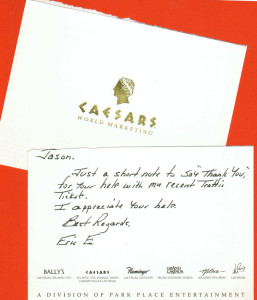 CAESARS
WORLD MARKETING
Jason.
Just a short note to say "Thank You,"
for your help with my recent Traffic
Ticket.
I appreciate your help.
Best Regards.
Eric E
BALLY'S CAESARS Flamingo GRAND Hilton
A DIVISION OF PARK PLACE ENTERTAINMENT